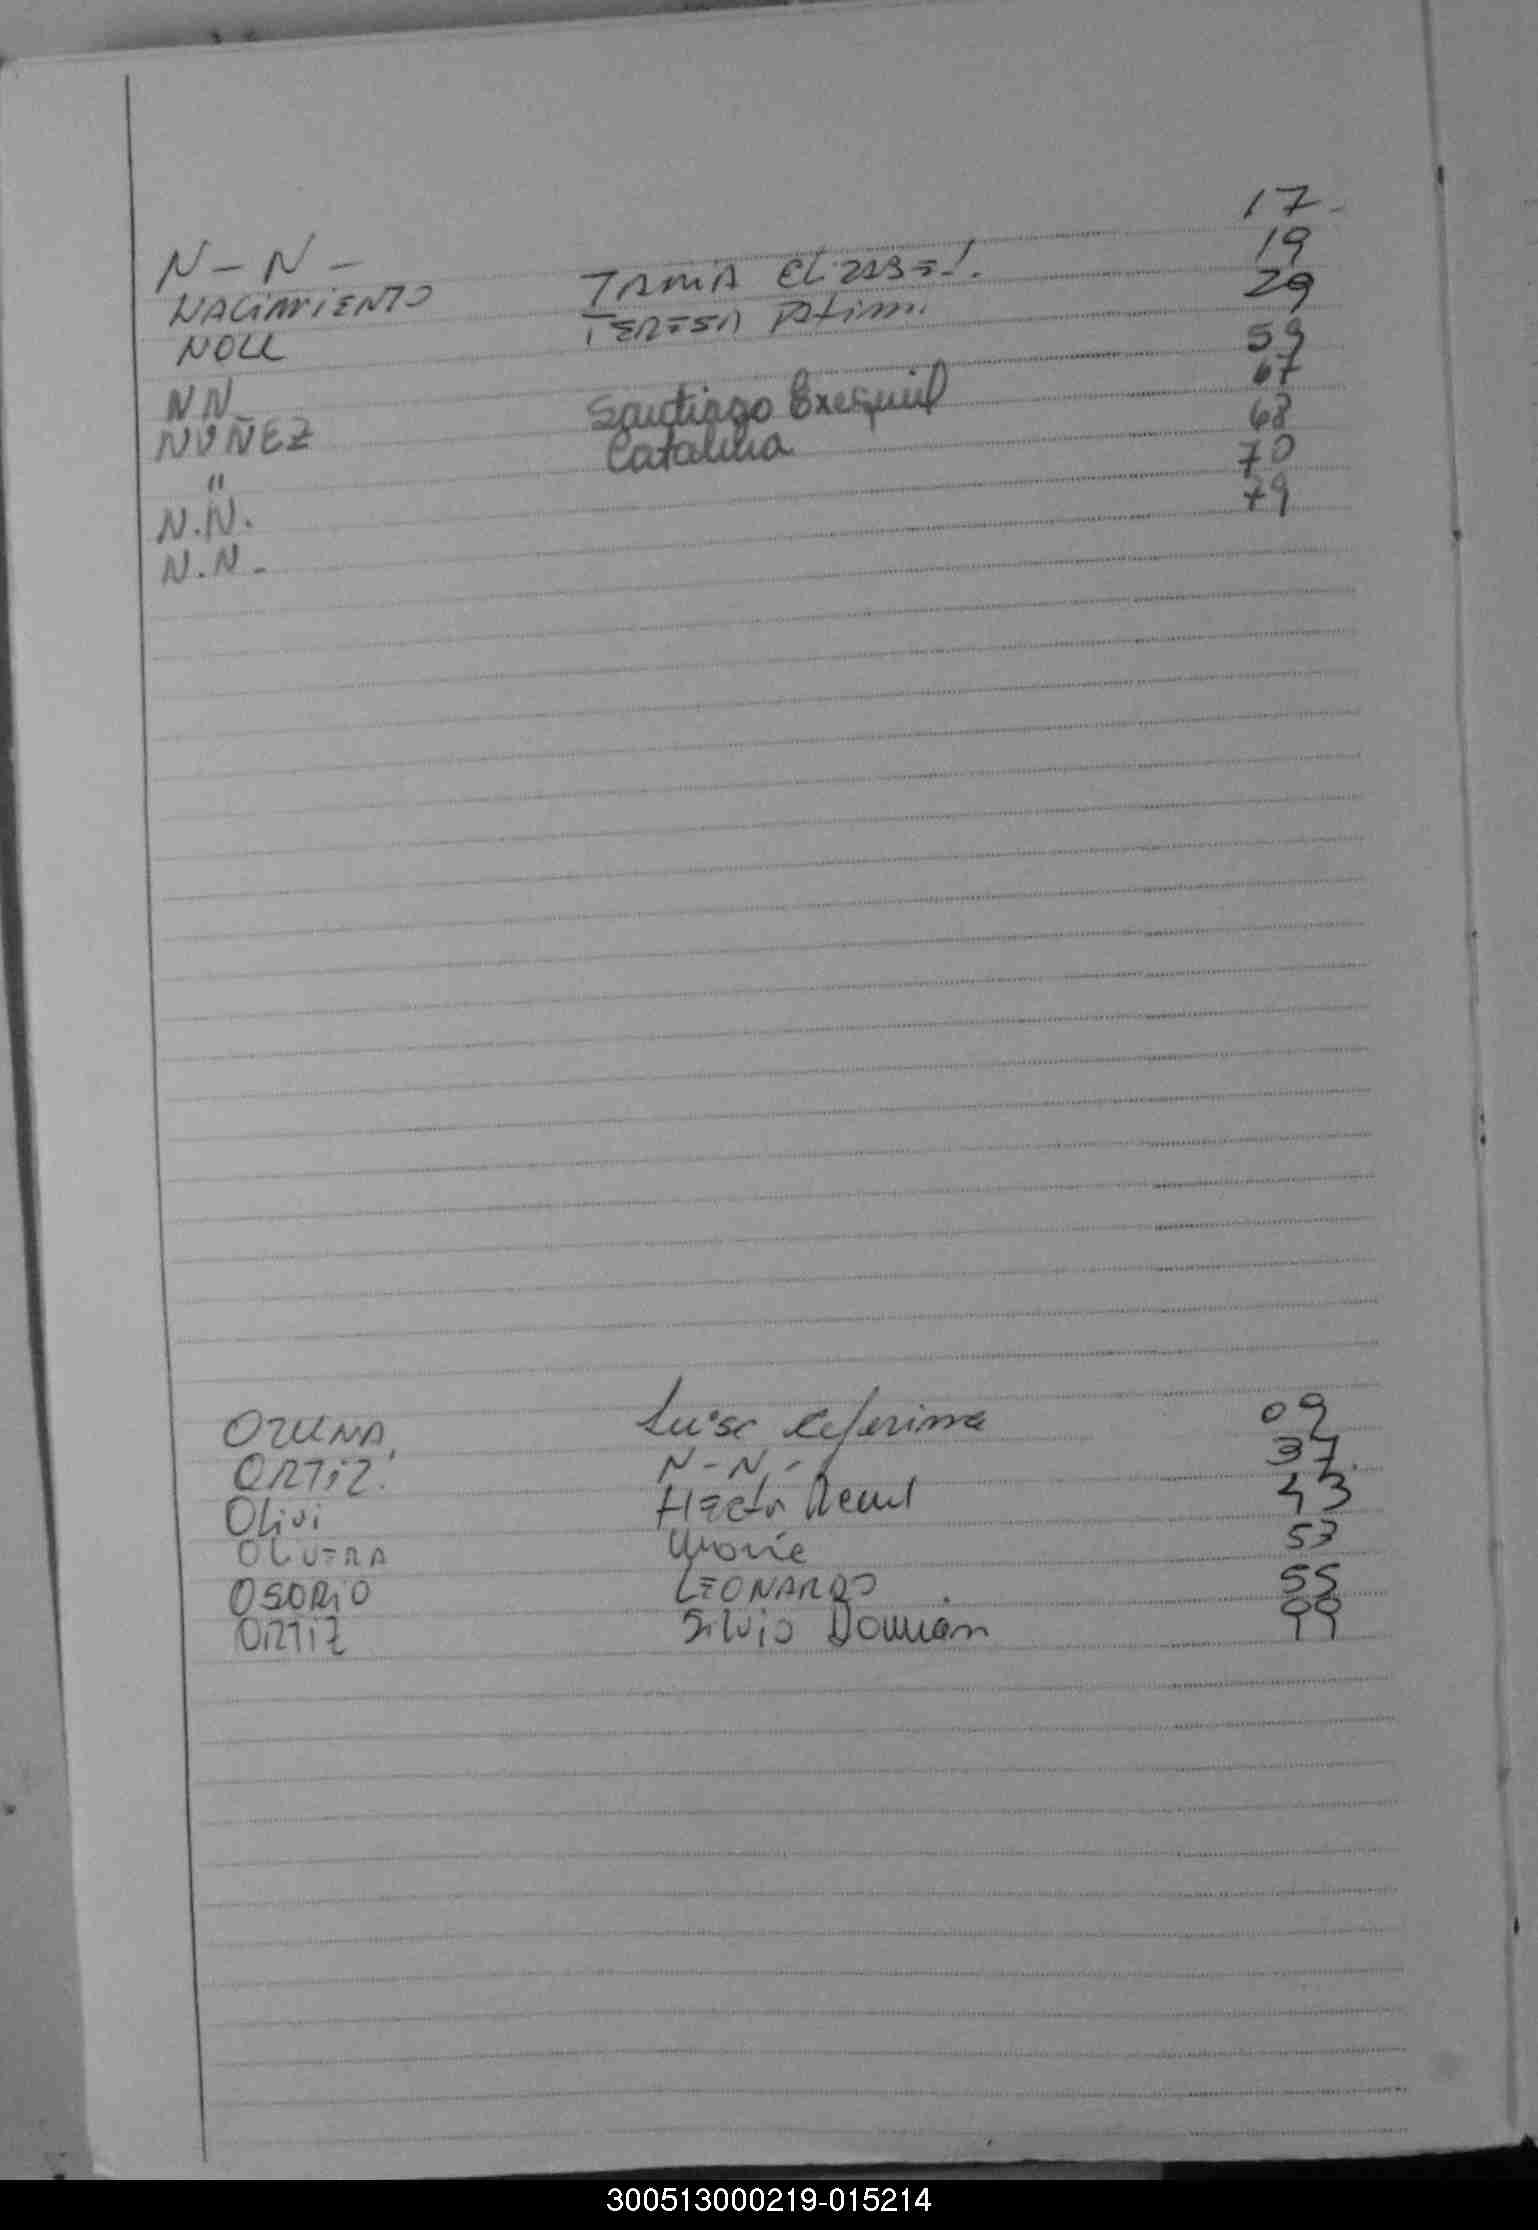 N-N- 17-
NACIMIENTO TAMIA ELIZABEL. 19
NOLL TERESA 29
NN 59
NUÑEZ Santiago Exequiel 67
" Catalina 68
N.N. 70
N.N.- 79
OZUNA, Luisa Ceferina 09
ORTIZ. N-N,- 37.
Olivi Hector Raul 43
OLIVERA Maria 53
OSORIO LEONARDO. 55
ORTIZ Silvio Damián 99
300513000219-015214